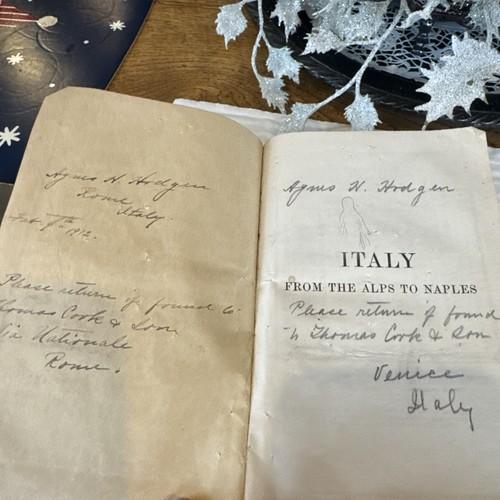 Agnes N. Hodgen
Rome
Italy.
Feb 9th 1912.
Please return if found to
Thomas Cook & Son
Via Nationale
Rome.
Agnes N. Hodgen
ITALY
FROM THE ALPS TO NAPLES
Please return if found
to Thomas Cook & Son
Venice
Italy